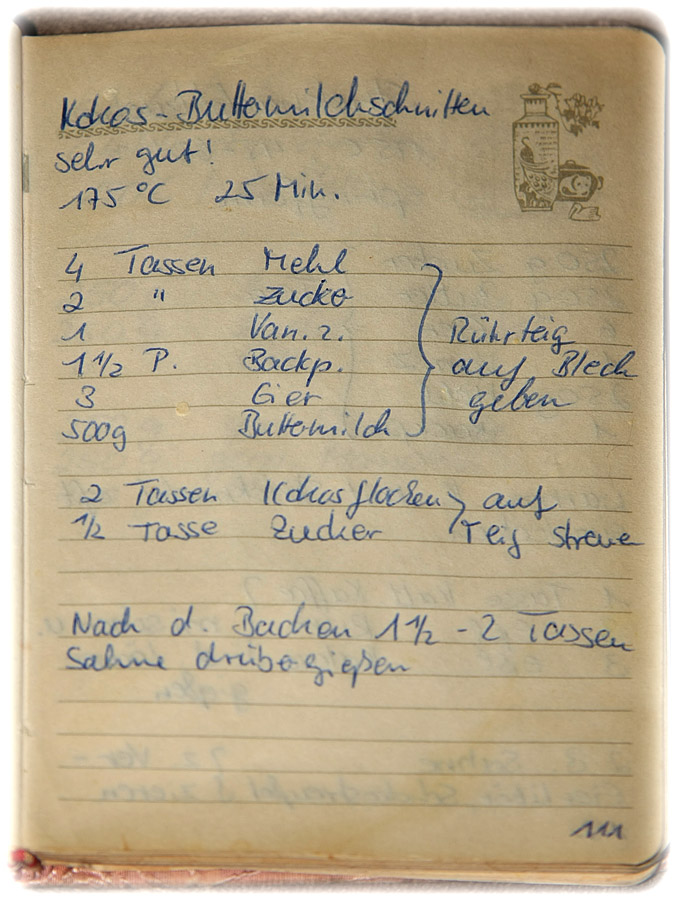 Kokos-Buttermilchschnitten
sehr gut!
175°C 25 Min.
4 Tassen Mehl
2 " Zucker
1 Van. z.
1 1/2 P. Backp.
3 Eier
500g Buttermilch
Rührteig
auf Blech
geben
2 Tassen Kokosflocken auf
1/2 Tasse Zucker Teig streuen
Nach d. Backen 1 1/2 - 2 Tassen
Sahne drübergießen
111